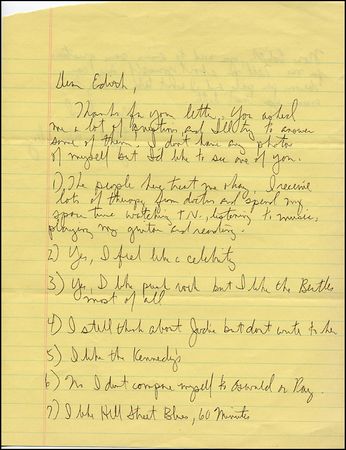 Dear Edwich,
Thanks for your letter. You asked
me a lot of questions and I'll try to answer
some of them. I don't have any photos
of myself but I'd like to see one of you.
1) The people here treat me okay. I receive
lots of therapy from doctors and spend my
spare time watching T.V., listening to music,
playing my guitar and reading.
2) Yes, I feel like a celebrity
3) Yes, I like punk rock but I like the Beatles
most of all
4) I still think about Jodie but don't write to her
5) I like the Kennedy's
6) No I don't compare myself to Oswald or Ray.
7) I like Hill Street Blues, 60 Minutes